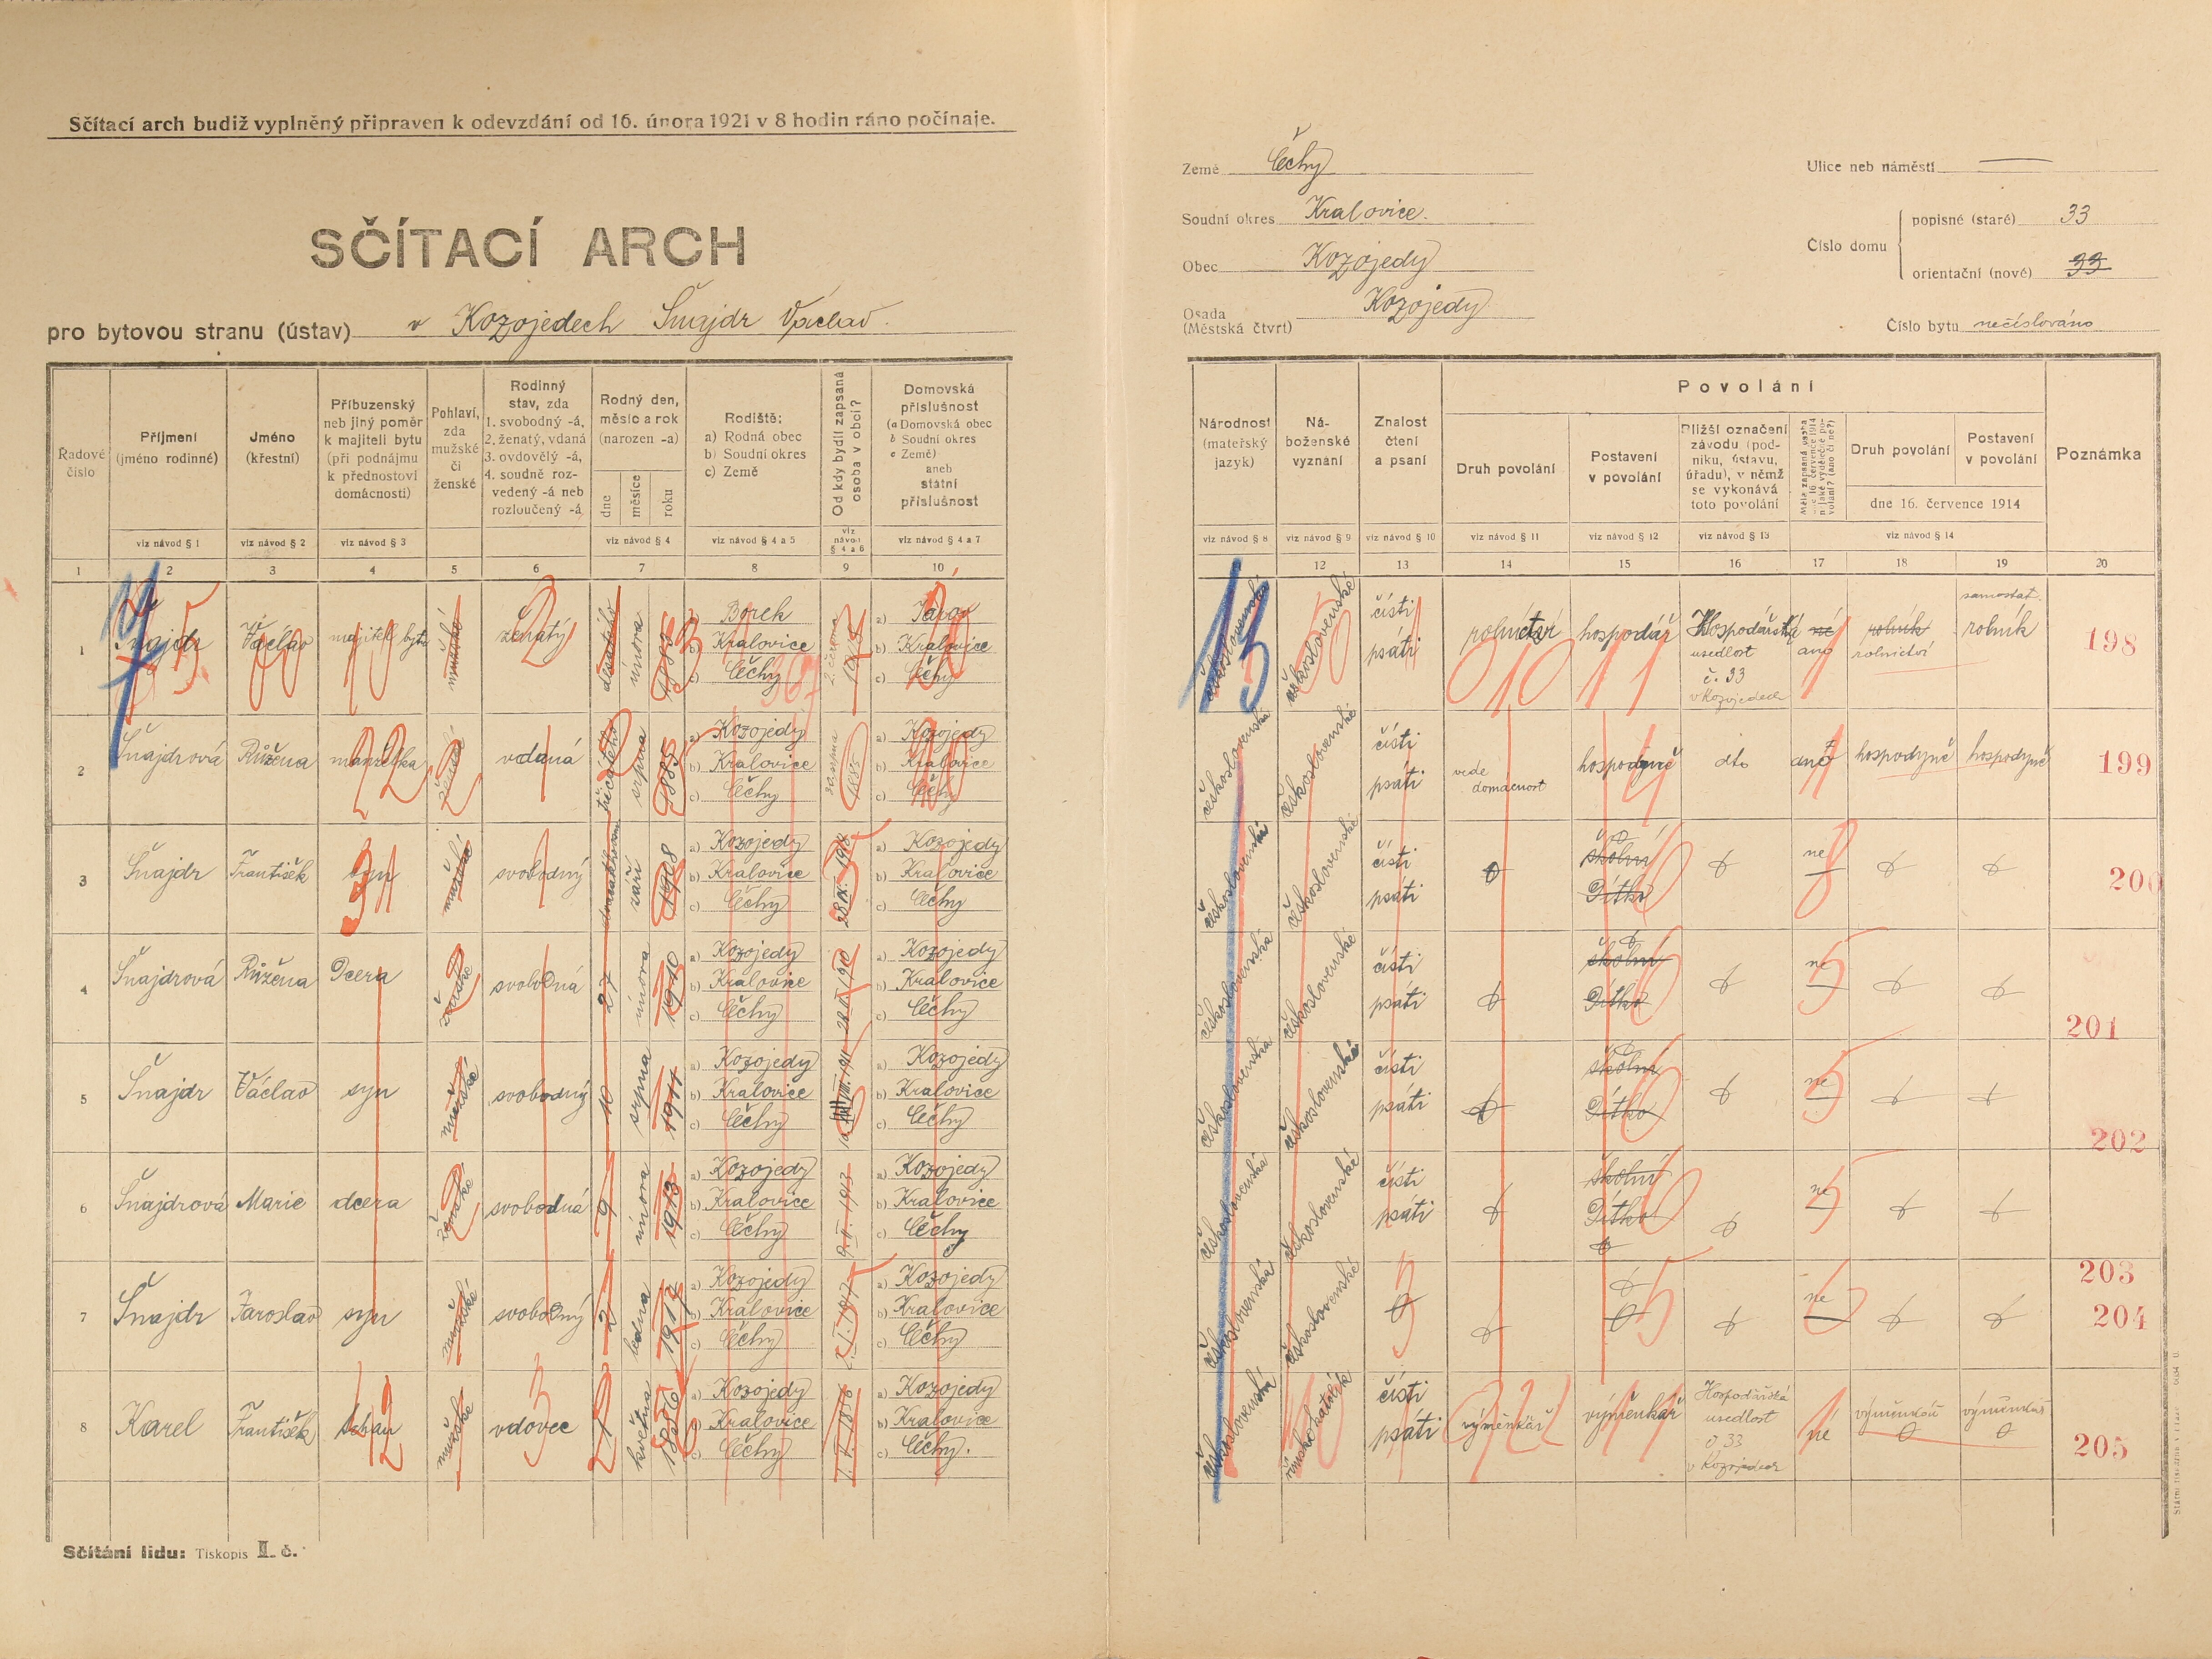 Sčítací arch budiž vyplněný připraven k odevzdání od 16. února 1921 v 8 hodin ráno počínaje.
SČÍTACÍ ARCH
pro bytovou stranu (ústav) v Kozojedech Šnajdr Václav
Země Čéchy
Soudní okres Kralovice.
Obec Kozojedy
Osada (Městská čtvrt) Kozojedy
Ulice neb náměstí
Číslo domu
popisné (staré) 33
orientační (nové) 33
Číslo bytu nečíslováno
Řadové číslo
Příjmení (jméno rodinné)
Jméno (křestní)
Příbuzenský neb jiný poměr k majiteli bytu (při podnájmu k přednostovi domácnosti)
Pohlaví, zda mužské či ženské
Rodinný stav, zda 1. svobodný -á, 2. ženatý, vdaná 3. ovdovělý -á, 4. soudně rozvedený -á neb rozloučený -á
Rodný den, měsíc a rok (narozen -a)
dne měsíce roku
Rodiště: a) Rodná obec b) Soudní okres c) Země
Od kdy bydlí zapsaná osoba v obci?
Domovská příslušnost (a Domovská obec b Soudní okres c Země) aneb státní příslušnost
viz návod § 1 viz návod § 2 viz návod § 3 viz návod § 4 viz návod § 4 a 5 viz návod § 4 a 6 viz návod § 4 a 7
1 2 3 4 5 6 7 8 9 10
Národnost (mateřský jazyk)
Náboženské vyznání
Znalost čtení a psaní
Povolání
Druh povolání
Postavení v povolání
Bližší označení závodu (podniku, ústavu, úřadu), v němž se vykonává toto povolání
Druh povolání
Postavení v povolání
dne 16. července 1914
Poznámka
viz návod § 8 viz návod § 9 viz návod § 10 viz návod § 11 viz návod § 12 viz návod § 13 viz návod § 14
12 13 14 15 16 17 18 19 20
1 Šnajdr Václav majitel bytu mužské ženatý desátého února 1883 a) Borek b) Kralovice c) Čéchy
b) Kralovice c) Čéchy
československé čísti psáti rolnictví hospodář Hospodářská usedlost č. 33 v Kozojedech ano rolník rolnictví samostat. rolník 198
2 Šnajdrová Růžena manželka ženské vdaná třicátého srpna 1885 a) Kozojedy b) Kralovice c) Čéchy
a) Kozojedy b) Kralovice c) Čéchy
československá československé čísti psáti vede domácnost hospodyně dto ano hospodyně hospodyně 199
3 Šnajdr František syn mužské svobodný září 1908 a) Kozojedy b) Kralovice c) Čéchy
a) Kozojedy b) Kralovice c) Čéchy
československá československé čísti psáti školní Dítko ne 200
4 Šnajdrová Růžena Dcera ženské svobodná 27 února 1910 a) Kozojedy b) Kralovice c) Čéchy
a) Kozojedy b) Kralovice c) Čéchy
československá československé čísti psáti školní Dítko ne 201
5 Šnajdr Václav syn mužské svobodný 10 srpna 1911 a) Kozojedy b) Kralovice c) Čéchy
a) Kozojedy b) Kralovice c) Čéchy
československá československé čísti psáti školní Dítko ne 202
6 Šnajdrová Marie dcera ženské svobodná 9 února 1913 a) Kozojedy b) Kralovice c) Čéchy 9. II. 1913
a) Kozojedy b) Kralovice c) Čéchy
československá československé čísti psáti školní Dítko ne 203
7 Šnajdr Jaroslav syn mužské svobodný 2 ledna 1917 a) Kozojedy b) Kralovice c) Čéchy
a) Kozojedy b) Kralovice c) Čéchy
československá československé ne 204
8 Karel František tchán mužské vdovec května 1856 a) Kozojedy b) Kralovice c) Čéchy
a) Kozojedy b) Kralovice c) Čéchy.
československá čísti psáti výměnkář výměnkář Hospodářská usedlost č 33 v Kozojedech výměnkář výměnkář 205
Sčítání lidu: Tiskopis II. č.